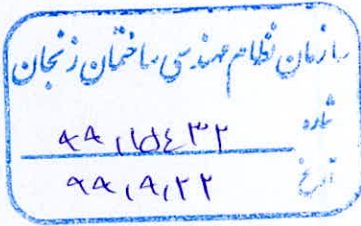 سازمان نظام مهندسی ساختمان زنجان
شماره ۹۹,۱۵۴۳۲
تاریخ ۹۹,۹,۲۲